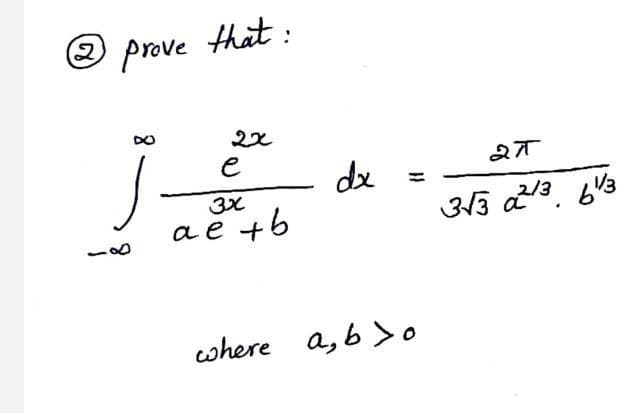 ② prove that :
∫_{-∞}^{∞} e^{2x} / (a e^{3x} + b) dx = 2π / (3√3 a^{2/3} . b^{1/3})
where a, b > 0